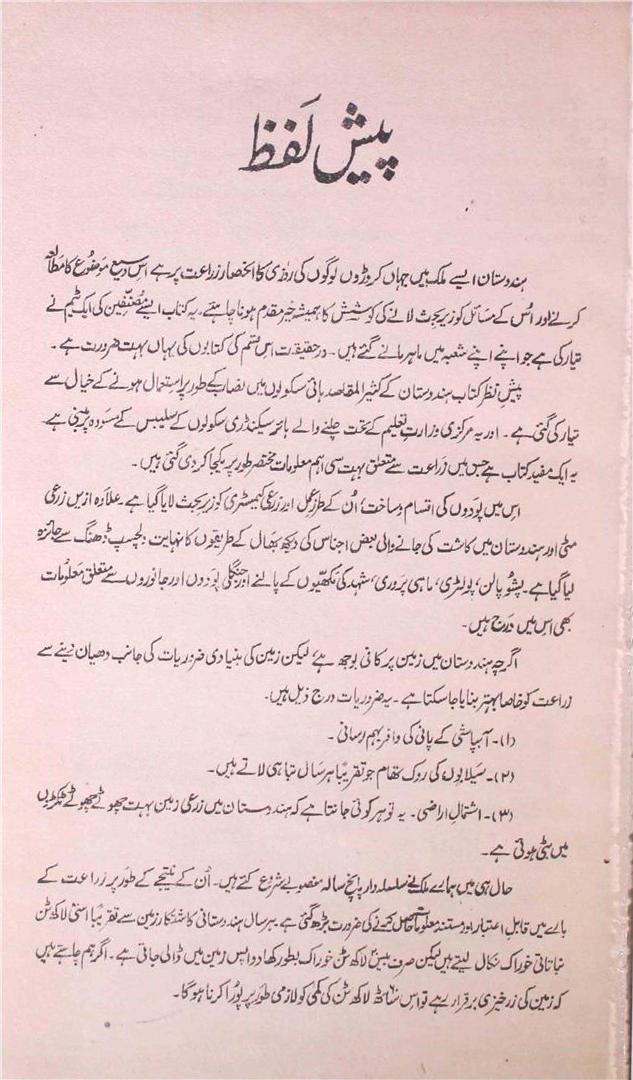 پیش لفظ
ہندوستان ایسے ملک میں جہاں کروڑوں لوگوں کی روزی کا انحصار زراعت پر ہے اس وسیع موضوع کا مطالعہ
کرنے اور اُس کے مسائل کو زیر بحث لانے کی کوشش کا ہمیشہ خیر مقدم ہونا چاہئے۔ یہ کتاب ایسے مصنفین کی ایک ٹیم نے
تیار کی ہے جو اپنے اپنے شعبہ میں ماہر مانے گئے ہیں۔ درحقیقت اس قسم کی کتابوں کی یہاں بہت ضرورت ہے۔
پیش نظر کتاب ہندوستان کے کثیر المقاصد ہائی سکولوں میں نصاب کے طور پر استعمال ہونے کے خیال سے
تیار کی گئی ہے۔ اور یہ مرکزی وزارت تعلیم کے تحت چلنے والے ہائر سیکنڈری سکولوں کے سلیبس کے مسودہ پر مبنی ہے۔
یہ ایک مفید کتاب ہے جس میں زراعت سے متعلق بہت سی اہم معلومات مختصر طور پر یکجا کر دی گئی ہیں۔
اس میں پودوں کی اقسام و ساخت، اُن کے طرزِ عمل اور زرعی کیمسٹری کو زیر بحث لایا گیا ہے۔ علاوہ ازیں زرعی
مٹی اور ہندوستان میں کاشت کی جانے والی بعض اجناس کی دیکھ بھال کے طریقوں کا نہایت دلچسپ ڈھنگ سے جائزہ
لیا گیا ہے۔ پشو پالن، پولٹری، ماہی پروری، شہد کی مکھیوں کے پالنے اور جنگلی پودوں اور جانوروں سے متعلق معلومات
بھی اس میں درج ہیں۔
اگرچہ ہندوستان میں زمین پر کافی بوجھ ہے لیکن زمین کی بنیادی ضروریات کی جانب دھیان دینے سے
زراعت کو خاصا بہتر بنایا جا سکتا ہے۔ یہ ضروریات درج ذیل ہیں۔
(۱)۔ آبپاشی کے پانی کی وافر بہم رسانی۔
(۲)۔ سیلابوں کی روک تھام جو تقریباً ہر سال تباہی لاتے ہیں۔
(۳)۔ اشتمالِ اراضی۔ یہ تو ہر کوئی جانتا ہے کہ ہندوستان میں زرعی زمین بہت چھوٹے چھوٹے ٹکڑوں
میں بٹی ہوتی ہے۔
حال ہی میں ہمارے ملک نے سلسلہ وار پانچ سالہ منصوبے شروع کئے ہیں۔ اُن کے نتیجے کے طور پر زراعت کے
بارے میں قابلِ اعتبار اور مستند معلومات حاصل کرنے کی ضرورت بڑھ گئی ہے۔ ہر سال ہندوستانی کاشتکار زمین سے تقریباً اسّی لاکھ ٹن
نباتاتی خوراک نکال لیتے ہیں لیکن صرف بیس لاکھ ٹن خوراک بطور کھاد واپس زمین میں ڈالی جاتی ہے۔ اگر ہم چاہتے ہیں
کہ زمین کی زرخیزی برقرار رہے تو اس ساٹھ لاکھ ٹن کی کمی کو لازمی طور پر پُورا کرنا ہوگا۔